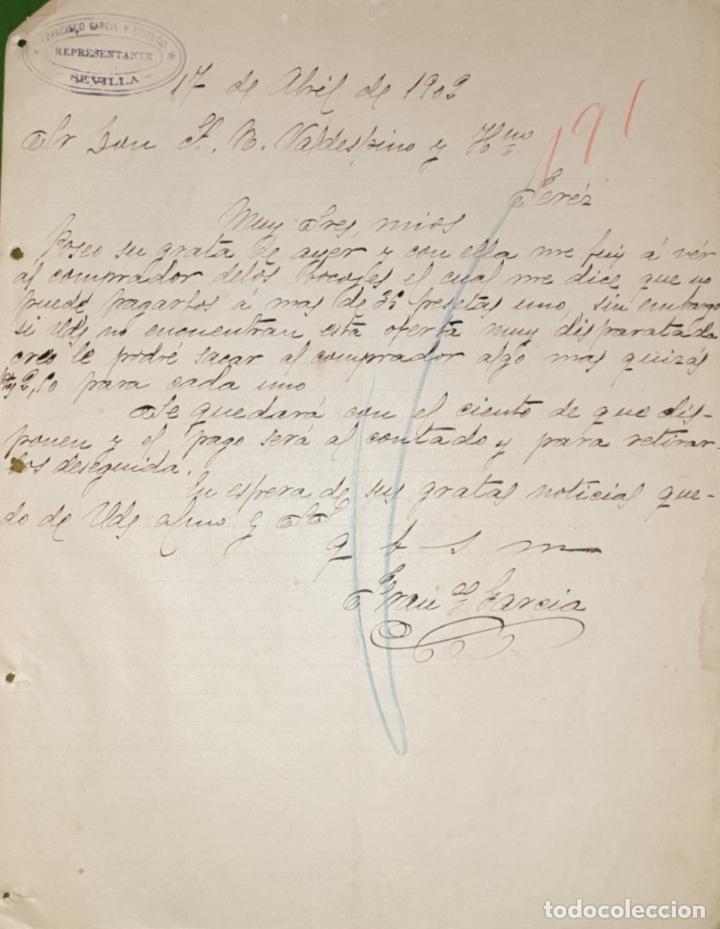 FRANCISCO GARCIA Y
REPRESENTANTE
SEVILLA
17 de Abril de 1902
191
Sr Don A. R. Valdespino y Hno
Jeréz
Muy Sres, mios
Poseo su grata de ayer y con ella me fuy á vér
al comprador delos bocoyes el cual me dice que no
puede pagarlos á mas de pesetas uno, sin embargo
si Uds no encuentran esta oferta muy disparatada
creo le podré sacar al comprador algo mas quizás
2,50 para cada uno
Se quedará con el ciento de que dis-
ponen y el pago será al contado y para retirar-
los deseguida.
En espera de sus gratas noticias que-
do de Uds afmo y S S
q b s m
Franco Garcia
todocoleccion